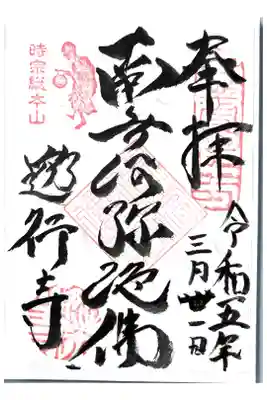 奉拝
令和五年
三月廿一日
南無阿弥陀佛
時宗総本山
遊行寺